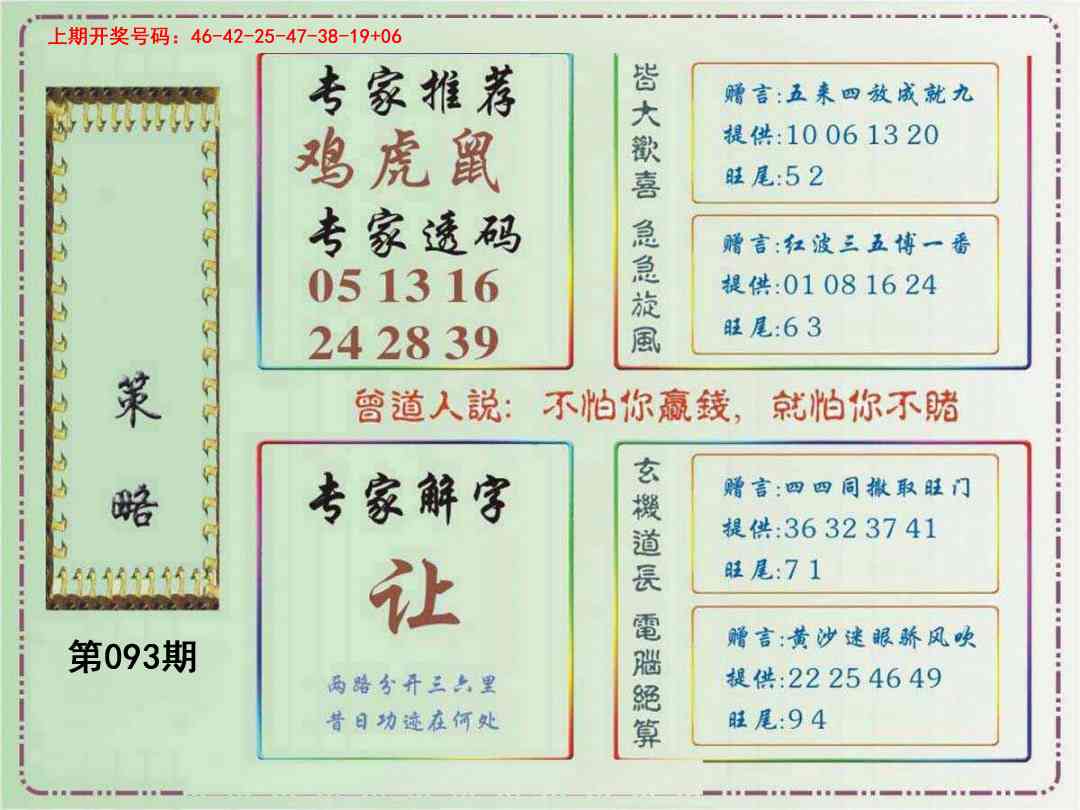 上期开奖号码：46-42-25-47-38-19+06
策略
第093期
专家推荐
鸡虎鼠
专家透码
05 13 16
24 28 39
皆大歡喜
赠言:五来四放成就九
提供:10 06 13 20
旺尾:5 2
急急旋風
赠言:红波三五博一番
提供:01 08 16 24
旺尾:6 3
曾道人説：不怕你贏錢，就怕你不賭
专家解字
让
两路分开三六里
昔日功迹在何处
玄機道長
赠言:四四同撒取旺门
提供:36 32 37 41
旺尾:7 1
電腦絕算
赠言:黄沙迷眼骄风吹
提供:22 25 46 49
旺尾:9 4